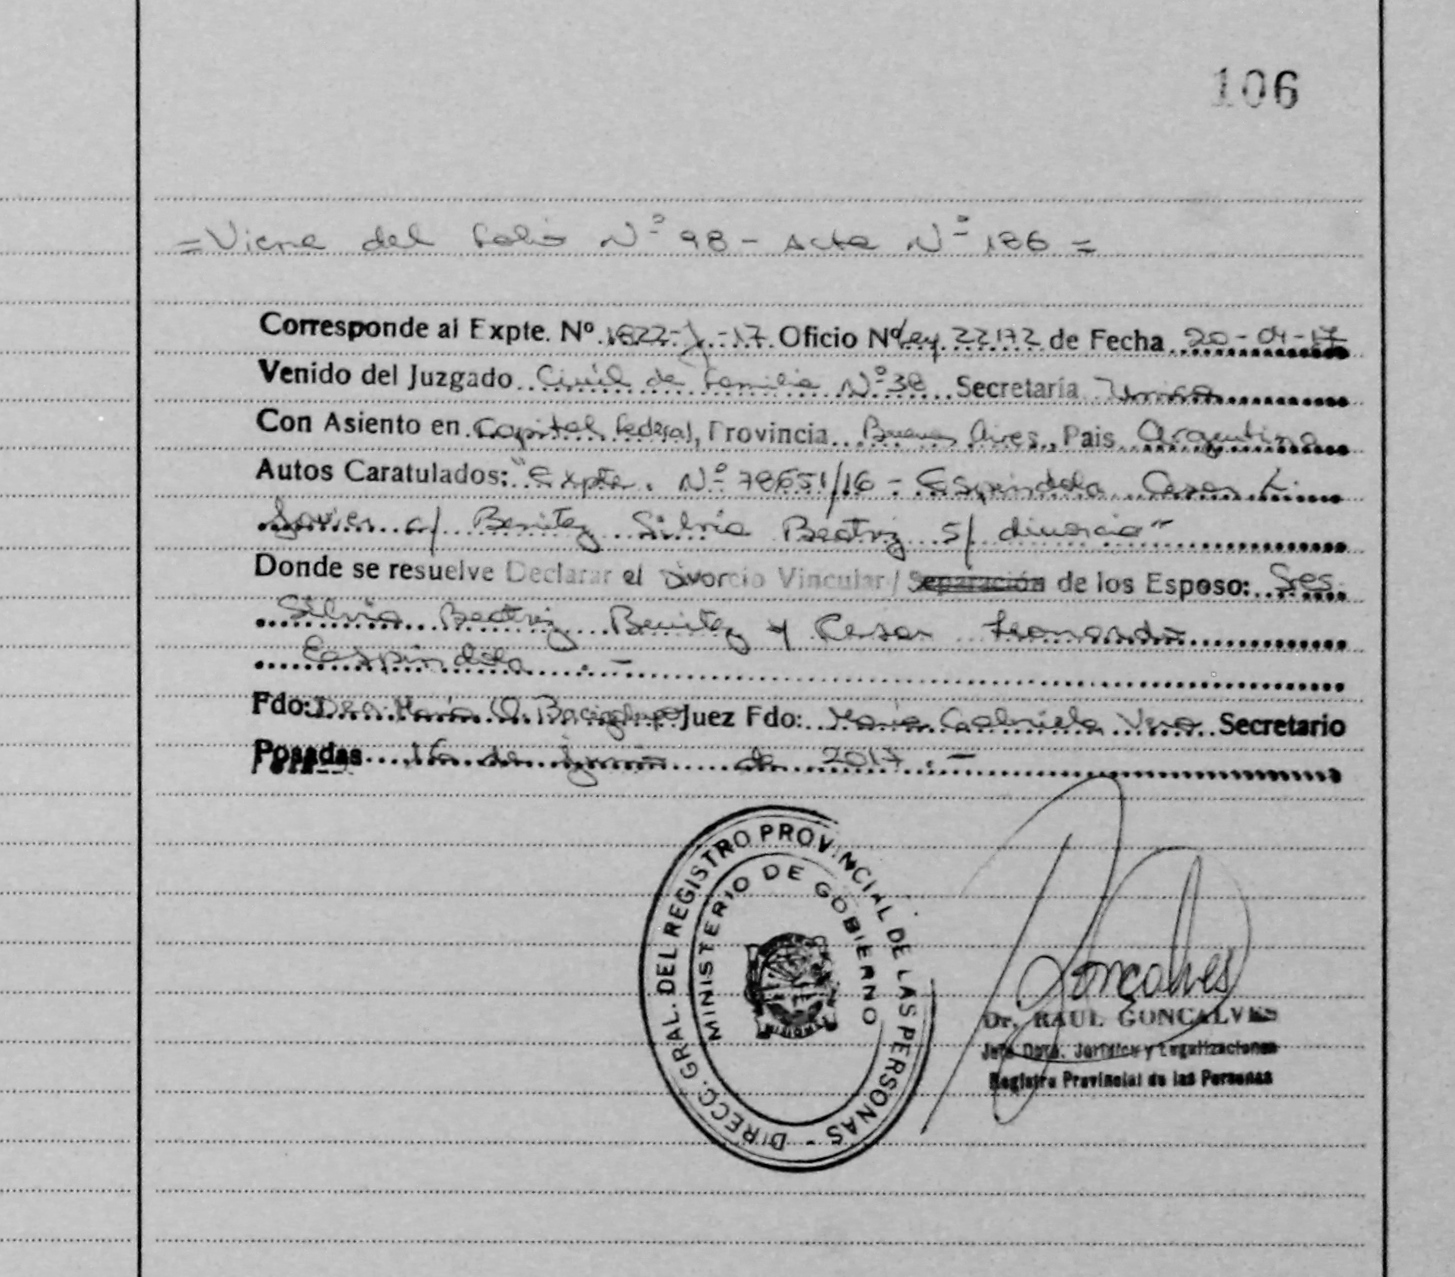 106
=Viene del folio Nº 98 - Acta Nº 186 =
Corresponde al Expte. Nº 1822-J-17 Oficio Nº Ley 22172 de Fecha 20-04-17
Venido del Juzgado Civil de Familia Nº 38 Secretaría Unica
Con Asiento en Capital Federal, Provincia Buenos Aires, Pais Argentina
Autos Caratulados: "Expte. Nº 78651/16 - Espindola Cesar L.
Javier c/ Benitez Silvia Beatriz s/ divorcio"
Donde se resuelve Declarar el Divorcio Vincular / Separación de los Esposo: Sres.
Silvia Beatriz Benitez y Cesar Leonardo
Espindola . -
Fdo: Dra. María O. Bacigalupo Juez Fdo: María Gabriela Vero Secretario
Posadas 16 de junio de 2017. -
DIRECC. GRAL. DEL REGISTRO PROVINCIAL DE LAS PERSONAS -
MINISTERIO DE GOBIERNO
MISIONES
Gonçalves
Dr. RAUL GONCALVES
Jefe Dpto. Jurídico y Legalizaciones
Registro Provincial de las Personas